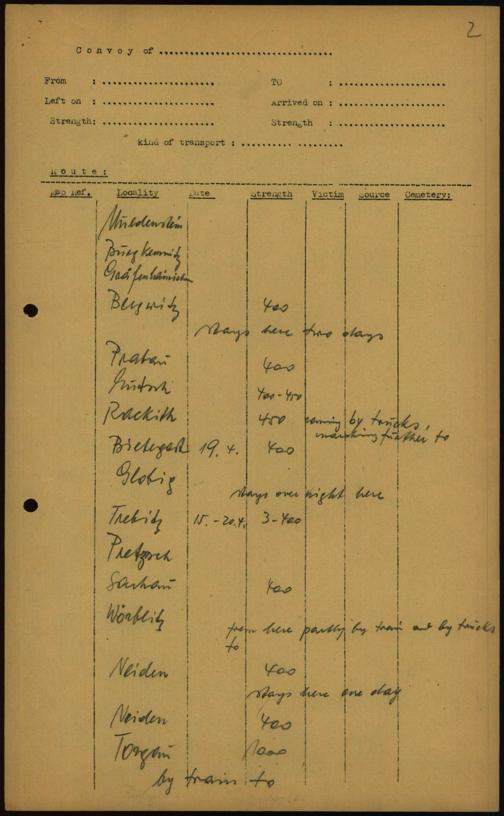 2
Convoy of ................................
From : ..................... TO : ....................
Left on : ..................... Arrived on : ....................
Strength: ..................... Strength : ....................
kind of transport : .......... .........
Route:
Map Ref. Locality Date Strength Victim Source Cemetery:
Muldenstein
Burgkemnitz
Gräfenhainichen
Bergwitz 400
stays here two days
Pratau 400
400-450
Rackith 450 coming by trucks,
marching further to
Bietegast 19.4. 400
Globig
stays over night here
Trebitz 15.-20.4. 3-400
Pretzsch
Sachau 400
Wörblitz
from here partly by train and by trucks
to
Neiden 400
stays here one day
Neiden 400
Torgau 1000
by train to